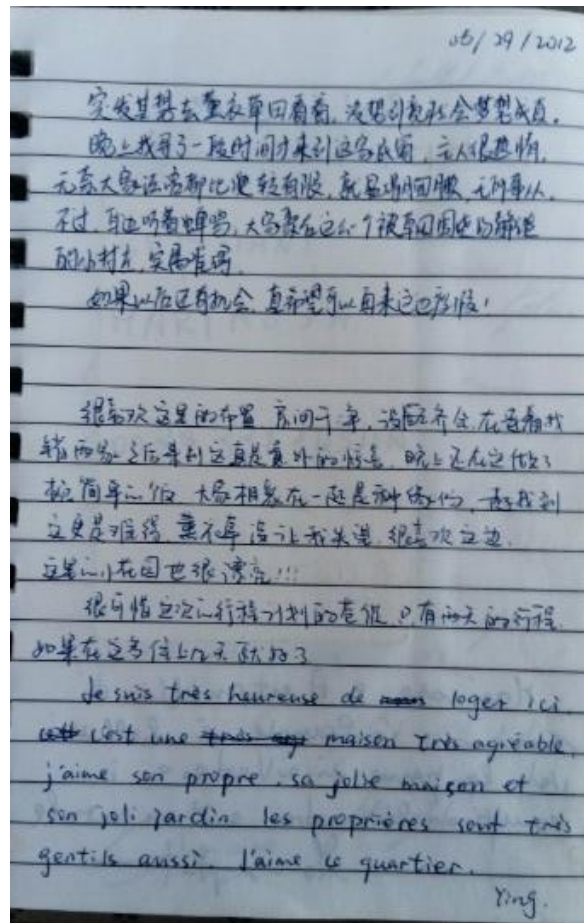 05/29/2012
突发其想去薰衣草田看看,没想到竟然会梦想成真。
晚上我寻了一段时间才来到这家民宿,主人很热情,
无奈大家语言都比较有限,
不过,耳边听着蝉鸣,大家聚在这么个被草田围绕的
的小村庄,实属难得
如果以后还有机会,真希望可以再来这边度假!
很喜欢这里的布置 房间干净,设施齐全,在查看找
错两家之后来到这真是意外的惊喜,晚上还在这做了
顿简单的饭 大家相聚在一起是种缘份,能找到
这更是难得 薰衣草没让我失望,很喜欢这边,
这里的小花园也很漂亮!!!
很可惜这次的行程计划的仓促 只有两天的行程
如果在这多住上几天就好了
Je suis très heureuse de loger ici
c'est une maison très agréable,
j'aime son propre, sa jolie maison et
son joli jardin les proprières sont très
gentils aussi. J'aime ce quartier.
Ying.